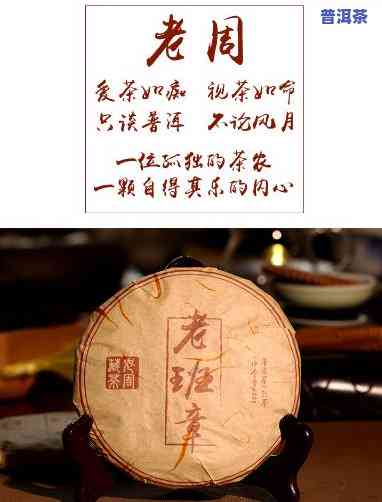 普洱茶
老周
爱茶如痴 视茶如命
只谈普洱 不论风月
一位孤独的茶农
一颗自得其乐的内心
老班章
老周
藏茶